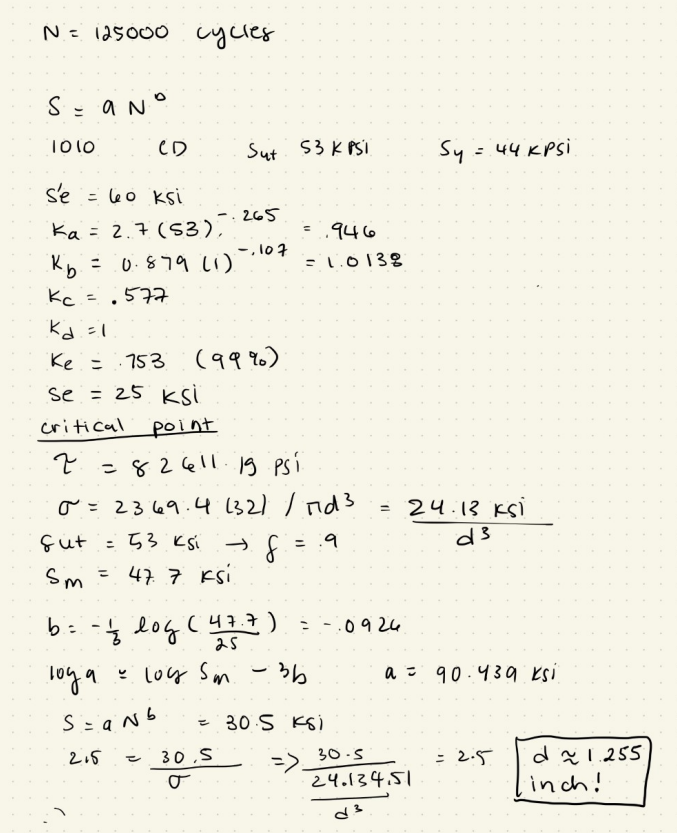 N = 125000 cycles
S = a N^b
1010 CD Sut 53 KPSi Sy = 44 KPSi
s'e = 60 ksi
Ka = 2.7 (53)^-.265 = .946
Kb = 0.879 (1)^-.107 = 1.0138
Kc = .577
Kd = 1
Ke = .753 (99%)
se = 25 ksi
critical point
τ = 82611.19 psi
σ = 2369.4 (32) / πd³ = 24.13 ksi / d³
Sut = 53 ksi → f = .9
Sm = 47.7 ksi
b = -1/3 log (47.7/25) = -.0926
log a = log Sm - 3b a = 90.439 ksi
S = a N^b = 30.5 ksi
2.5 = 30.5/σ => 30.5 / (24.134.51/d³) = 2.5 d ≈ 1.255
inch!